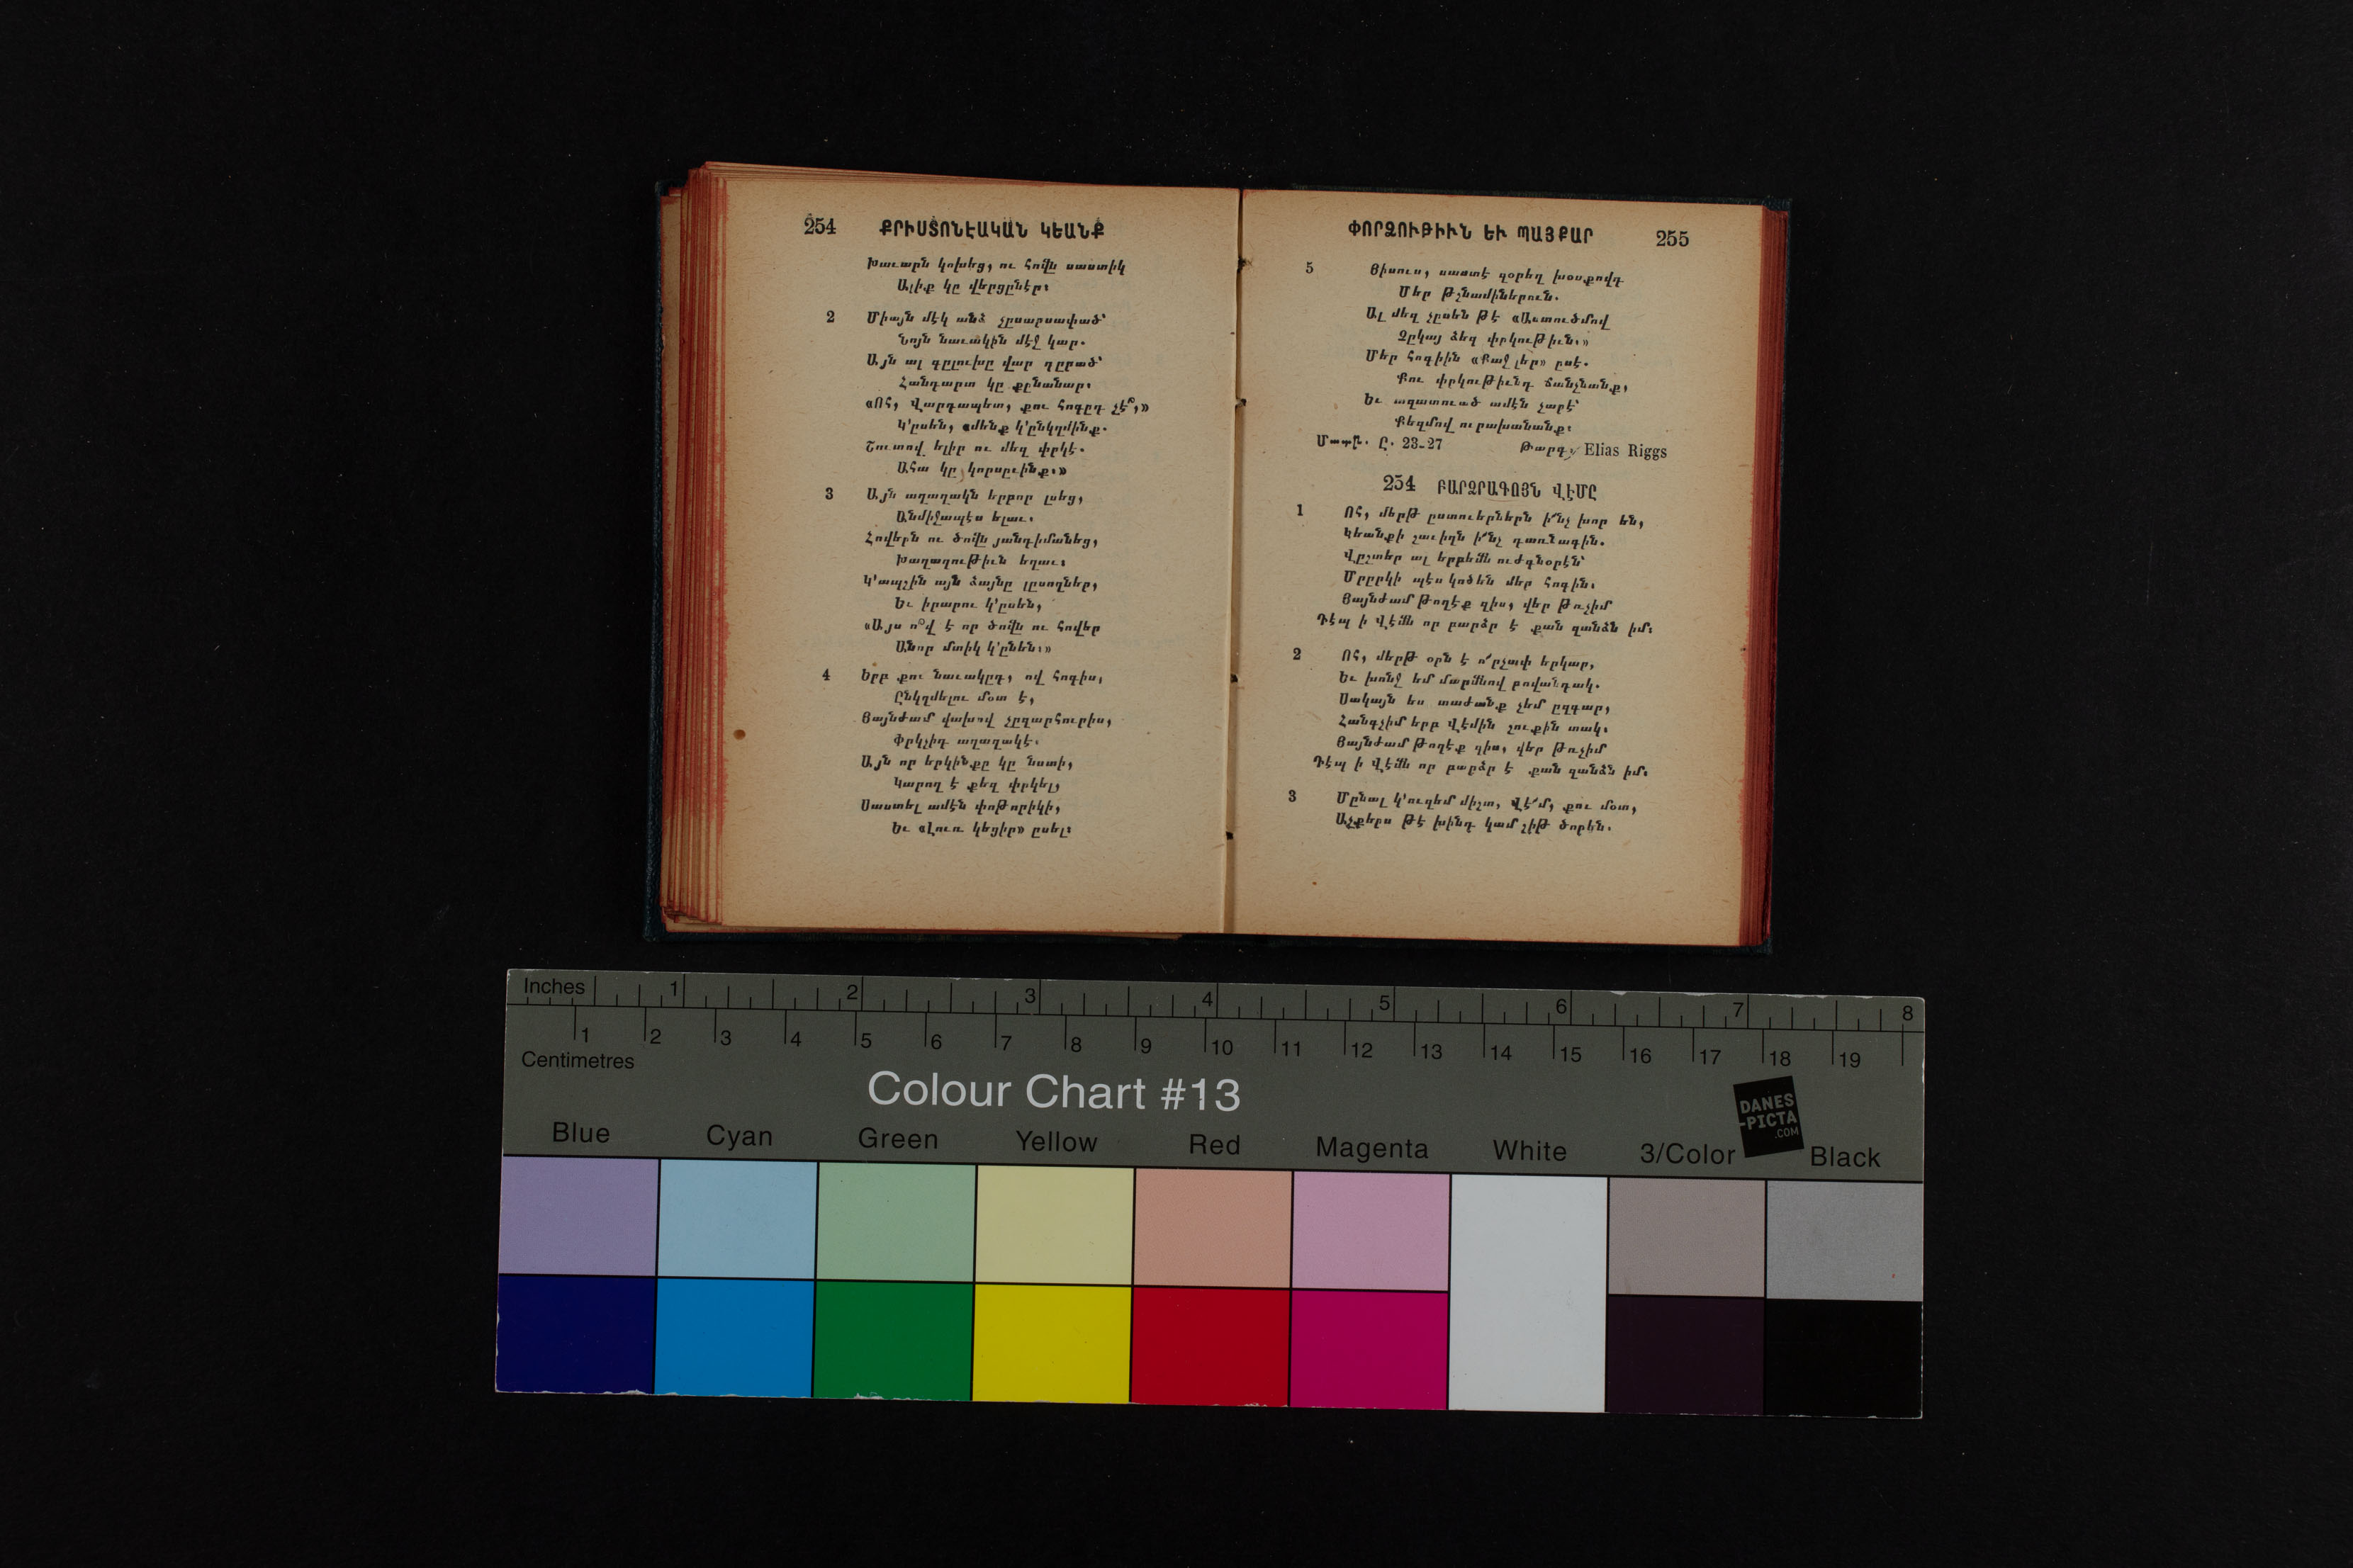 254 ՔՐԻՍՏՈՆԷԱԿԱՆ ԿԵԱՆՔ
Խաւարն կոխեց, ու հովն սաստիկ
Ալիք կը վերցընէր։
2 Միայն մէկ անձ չըսարսափած՝
Նոյն նաւակին մէջ կար.
Այն ալ գըլուխը վար դըրած՝
Հանդարտ կը քընանար։
«Ոհ, Վարդապետ, քու հոգըդ չէ՞,»
Կ'ըսեն, «մենք կ'ընկղմինք.
Շուտով ելիր ու մեզ փրկէ.
Ահա կը կորսըւինք.»
3 Այն աղաղակն երբոր լսեց,
Անմիջապէս ելաւ.
Հովերն ու ծովն յանդիմանեց,
Խաղաղութիւն եղաւ։
Կ'ապշին այն ձայնը լըսողներ,
Եւ իրարու կ'ըսեն,
«Այս ո՞վ է որ ծովն ու հովեր
Անոր մտիկ կ'ընեն։»
4 Երբ քու նաւակըդ, ով հոգիս,
Ընկղմելու մօտ է,
Ցայնժամ վախով չըզարհուրիս,
Փրկչիդ աղաղակէ.
Այն որ երկինքը կը նստի,
Կարող է քեզ փրկել,
Սաստել ամէն փոթորիկի,
Եւ «Լուռ կեցիր» ըսել։
ՓՈՐՁՈՒԹԻՒՆ ԵՒ ՊԱՅՔԱՐ 255
5 Յիսուս, սաստէ զօրեղ խօսքովդ
Մեր թշնամիներուն.
Ալ մեզ չըսեն թէ «Աստուծմով
Չըկայ ձեզ փրկութիւն.»
Մեր հոգիին «Քաջ լեր» ըսէ.
Քու փրկութիւնդ ճանչնանք,
Եւ ազատուած ամէն չարէ՝
Քեզմով ուրախանանք։
Մատթ. Ը. 23-27 Թարգ. Elias Riggs
254 ԲԱՐՁՐԱԳՈՅՆ ՎԷՄԸ
1 Ոհ, մերթ ըստուերներն ի՜նչ խոր են,
Կեանքի շաւիղն ի՜նչ դառնագին.
Վըշտեր ալ երբեմն ուժգնօրէն՝
Մըրրկի պէս կոծեն մեր հոգին։
Ցայնժամ թողէք զիս, վեր թռչիմ
Դէպ ի Վէմն որ բարձր է քան զանձն իմ։
2 Ոհ, մերթ օրն է ո՜րչափ երկար,
Եւ խոնջ եմ մարմնով բովանդակ.
Սակայն ես տաժանք չեմ ըզգար,
Հանգչիմ երբ Վէմին շուքին տակ.
Ցայնժամ թողէք զիս, վեր թռչիմ
Դէպ ի Վէմն որ բարձր է քան զանձն իմ։
3 Մընալ կ'ուզեմ միշտ, Վէ՜մ, քու մօտ,
Աչքերս թէ խինդ կամ շիթ ծորեն.
Inches 1 2 3 4 5 6 7 8
1 2 3 4 5 6 7 8 9 10 11 12 13 14 15 16 17 18 19
Centimetres
Colour Chart #13
DANES
-PICTA
.COM
Blue Cyan Green Yellow Red Magenta White 3/Color Black